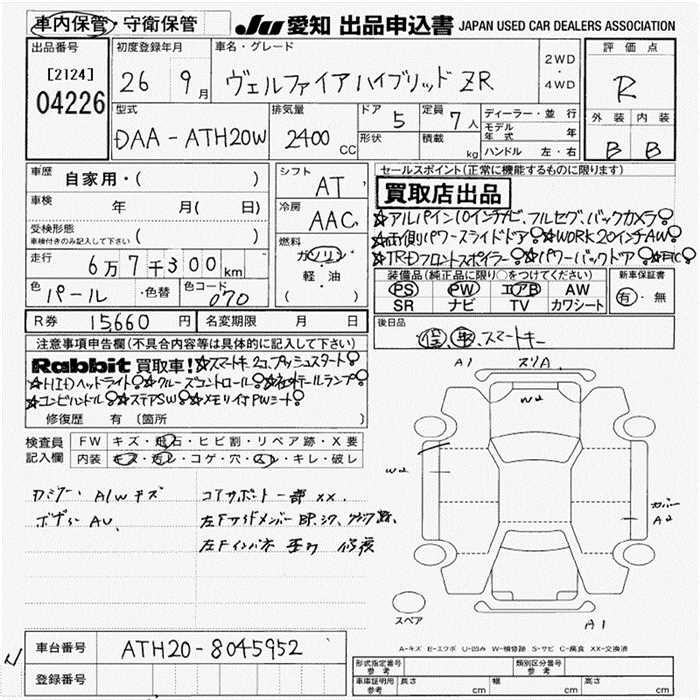 車内保管・守衛保管
JU 愛知 出品申込書 JAPAN USED CAR DEALERS ASSOCIATION
出品番号
[2124]
04226
初度登録年月
26 9月
車名・グレード
ヴェルファイアハイブリッド ZR
2WD
・
4WD
評価点
R
外装 内装
B B
型式
DAA-ATH20W
排気量
2400 CC
ドア
5
形状
定員
7人
積載
kg
ディーラー・並行
モデル年式 年
ハンドル 左・右
車歴
自家用・( )
車検 年 月( 日)
受検形態
車検付きのみ記入して下さい ( )
走行
6万7千300km
色
パール
・色替
色コード
070
シフト
AT
冷房
AAC
燃料
ガソリン
軽・油
( )
セールスポイント(正常に機能するものに限ります)
買取店出品
☆アルパイン10インチナビ、フルセグ、バックカメラ!
☆両側パワースライドドア!☆WORK20インチAW!
☆TRDフロントスポイラー!☆パワーバックドア!☆ETC!
装備品(純正品に限り○をつけてください)
PS PW エアB AW
SR ナビ TV カワシート
新車保証書
有・無
後日品
スマートキー
R券 15,660円
名変期限 月 日
注意事項申告欄(不具合内容等は具体的に記入して下さい)
Rabbit 買取車!☆スマートキー2コ、プッシュスタート!
☆HIDヘッドライト!☆クルーズコントロール!☆社外テールランプ!
☆コンビハンドル!☆ステアSW!☆メモリ付PWシート!
修復歴 有 〔箇所 〕
検査員
記入欄
FW キズ・飛石・ヒビ割・リペア跡・X要
内装 キズ・汚レ・コゲ・穴・スレ・キレ・破レ
A/Wキズ
コアサポート一部XX.
A1
スリA.
W2
W2
カバー
A2
スペア
A1
A-キズ E-エクボ U-凹み W-補修跡 S-サビ C-腐食 XX-交換済
車台番号 ATH20-8045952
登録番号
形式指定番号
参考
類別区分番号
参考
車庫証明用
参考
長さ cm 幅 cm 高さ cm